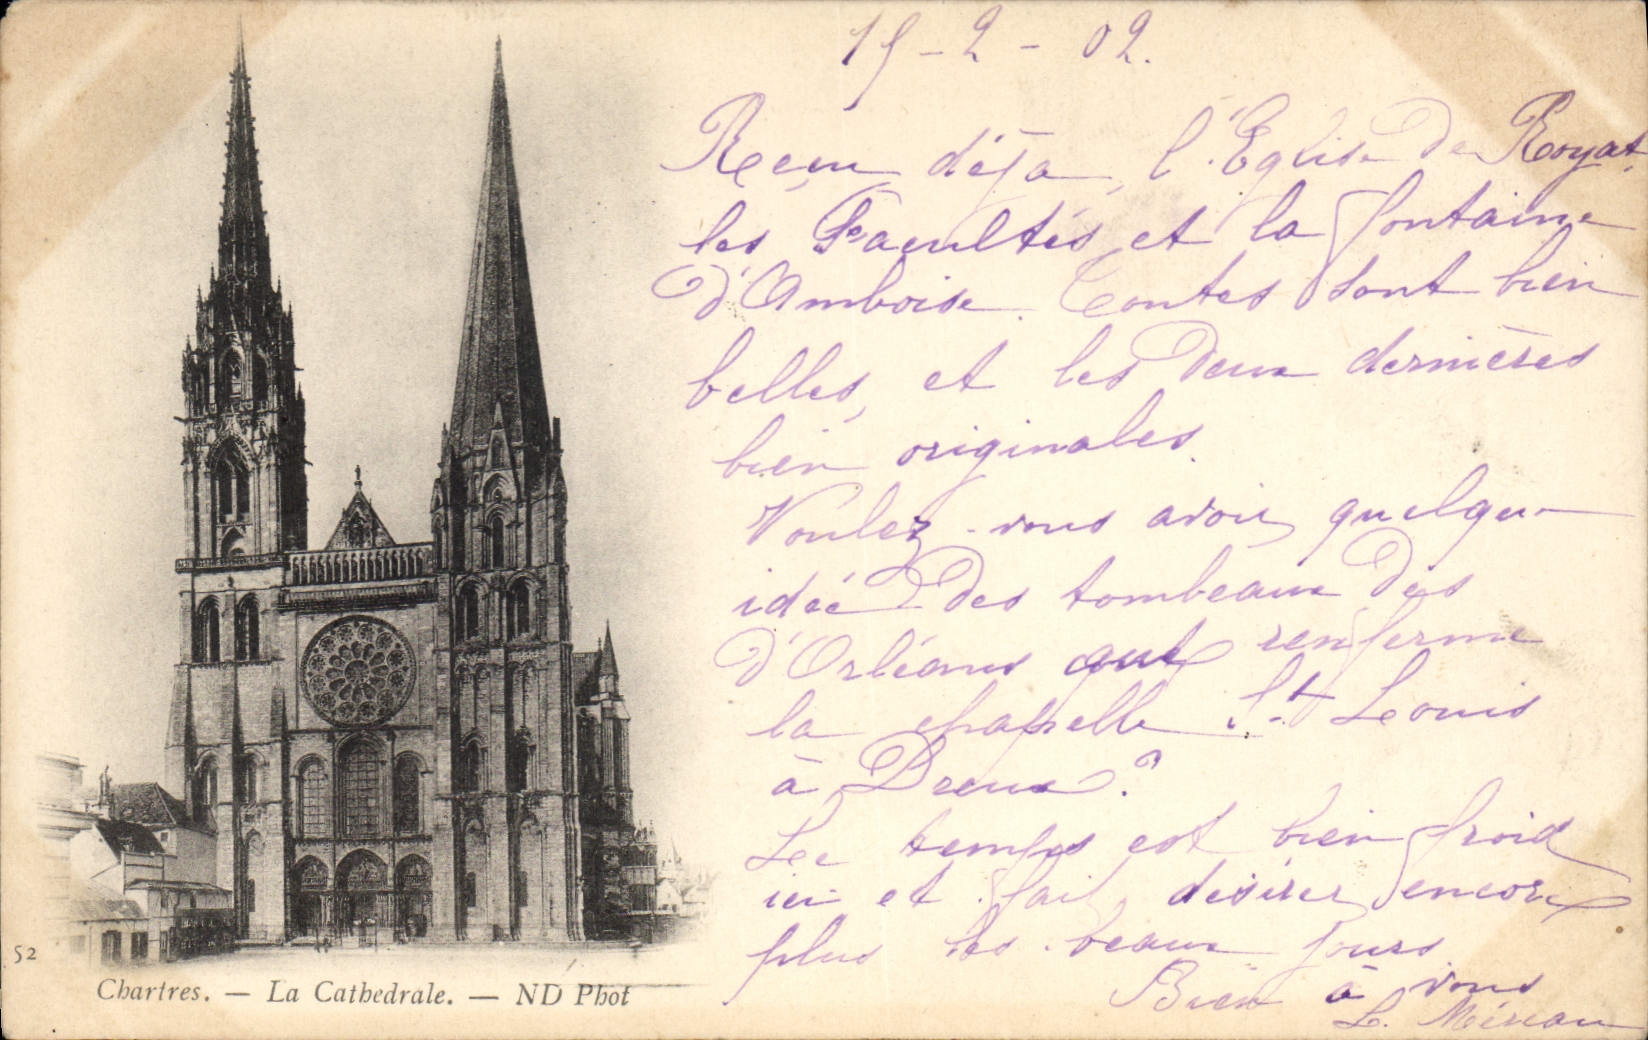 15-2-02.
Reçu déjà, l'Eglise de Royat,
les Facultés, et la fontaine
d'Amboise. Toutes sont bien
belles, et les deux dernières
bien originales.
Voulez-vous avoir quelque
idée des tombeaux des
d'Orléans que renferme
la chapelle St Louis
à Dreux?
Le temps est bien froid
ici et fait désirer encore
plus les beaux jours
Bien à vous
L.
52
Chartres. — La Cathedrale. — ND Phot